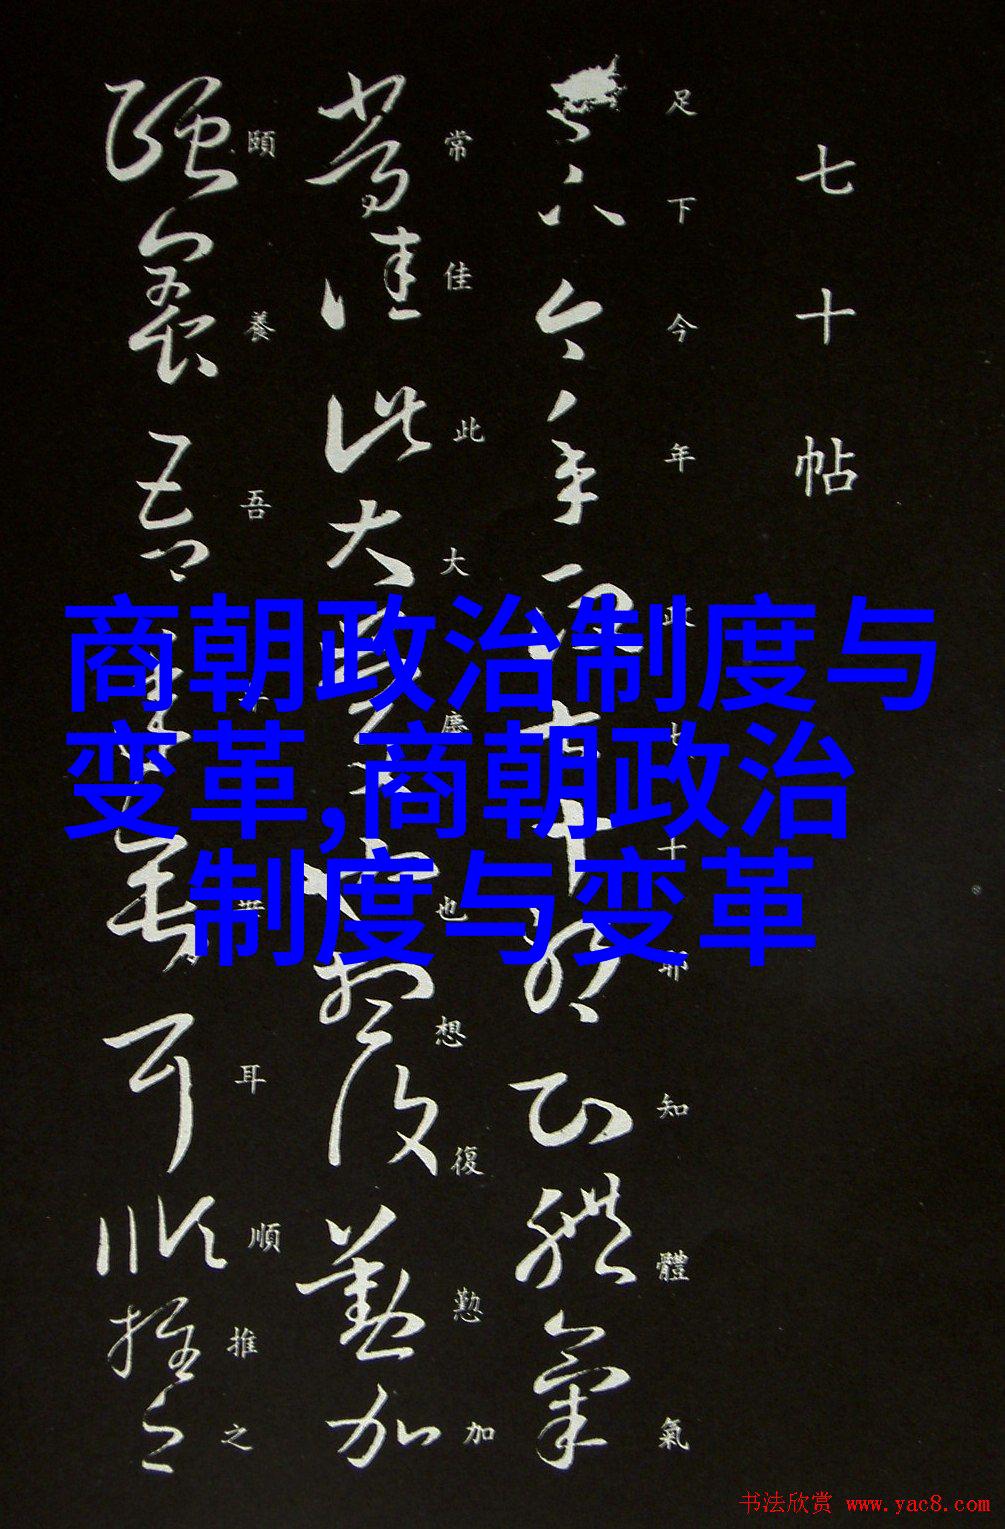 七十帖
足下今年政七十耶知體氣
常佳此大慶也想復懃加
頤養吾年垂耳順推之
商朝政治制度与
变革,商朝政治
制度与变革
书法欣赏 www.yac8.com